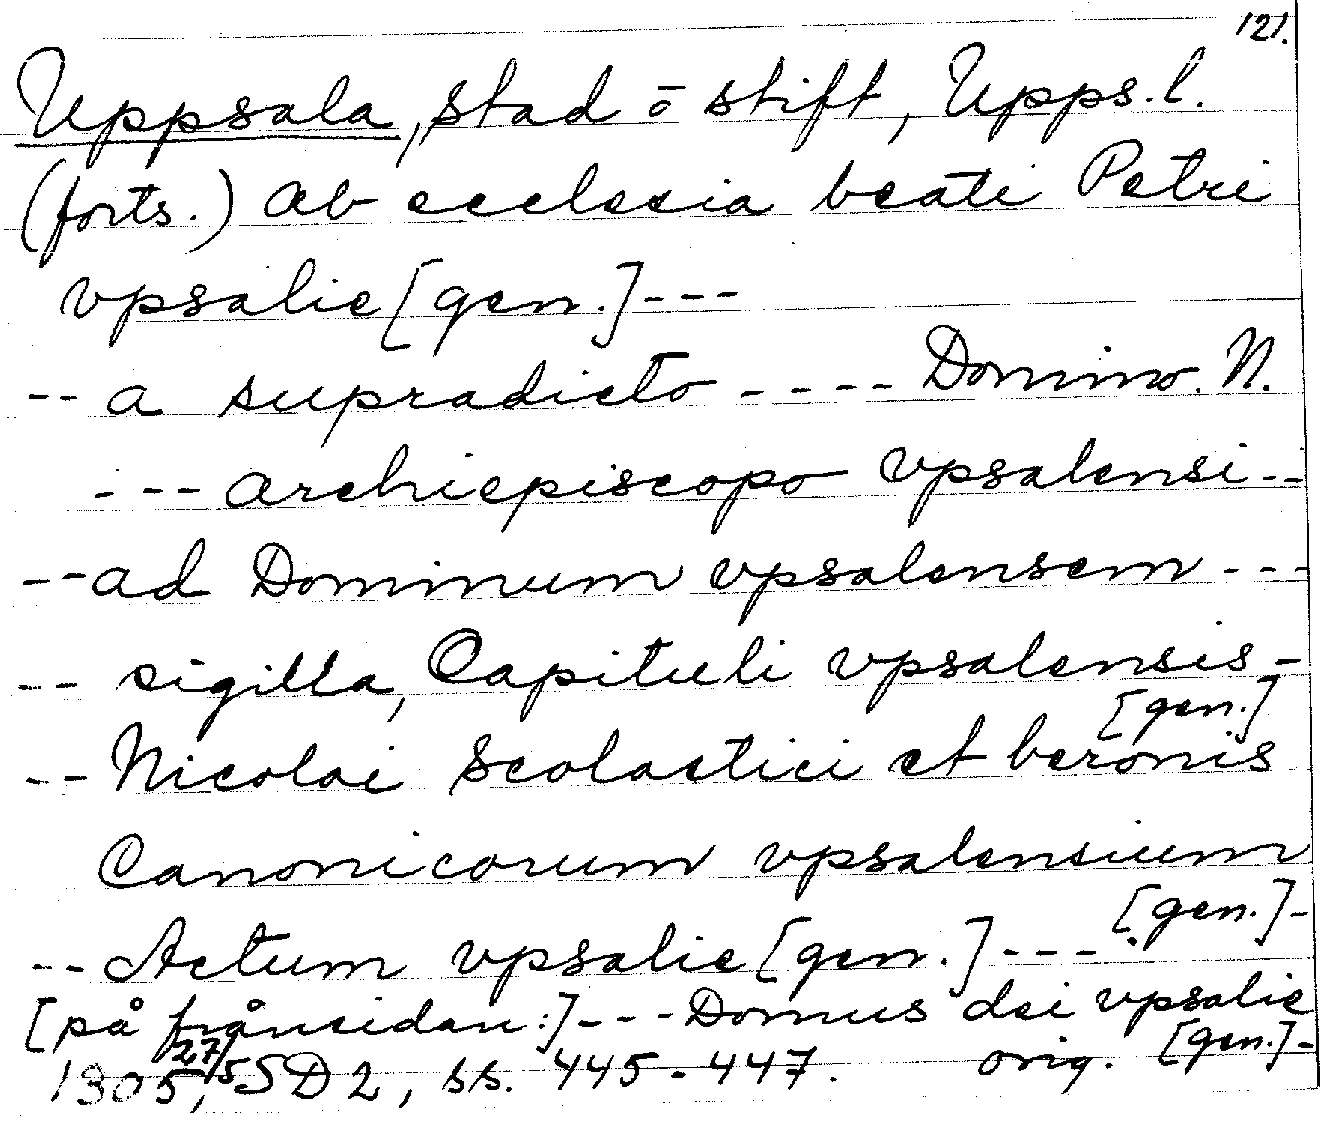 121.
Uppsala, stad ō stift, Upps.l.
(forts.) ab ecclesia beati Petri
vpsalie [gen.] ---
-- a supradicto ---- Domino. N.
--- archiepiscopo vpsalensi --
-- ad Dominum vpsalensem ---
-- sigilla, Capituli vpsalensis -
[gen.]
-- Nicolai Scolastici et beronis
Canonicorum vpsalensium
[gen.] -
-- Actum vpsalie [gen.] ---
[på frånsidan:] --- Domus dei vpsalie
[gen.] -
1305 27/5, SD 2, ss. 445-447. orig.